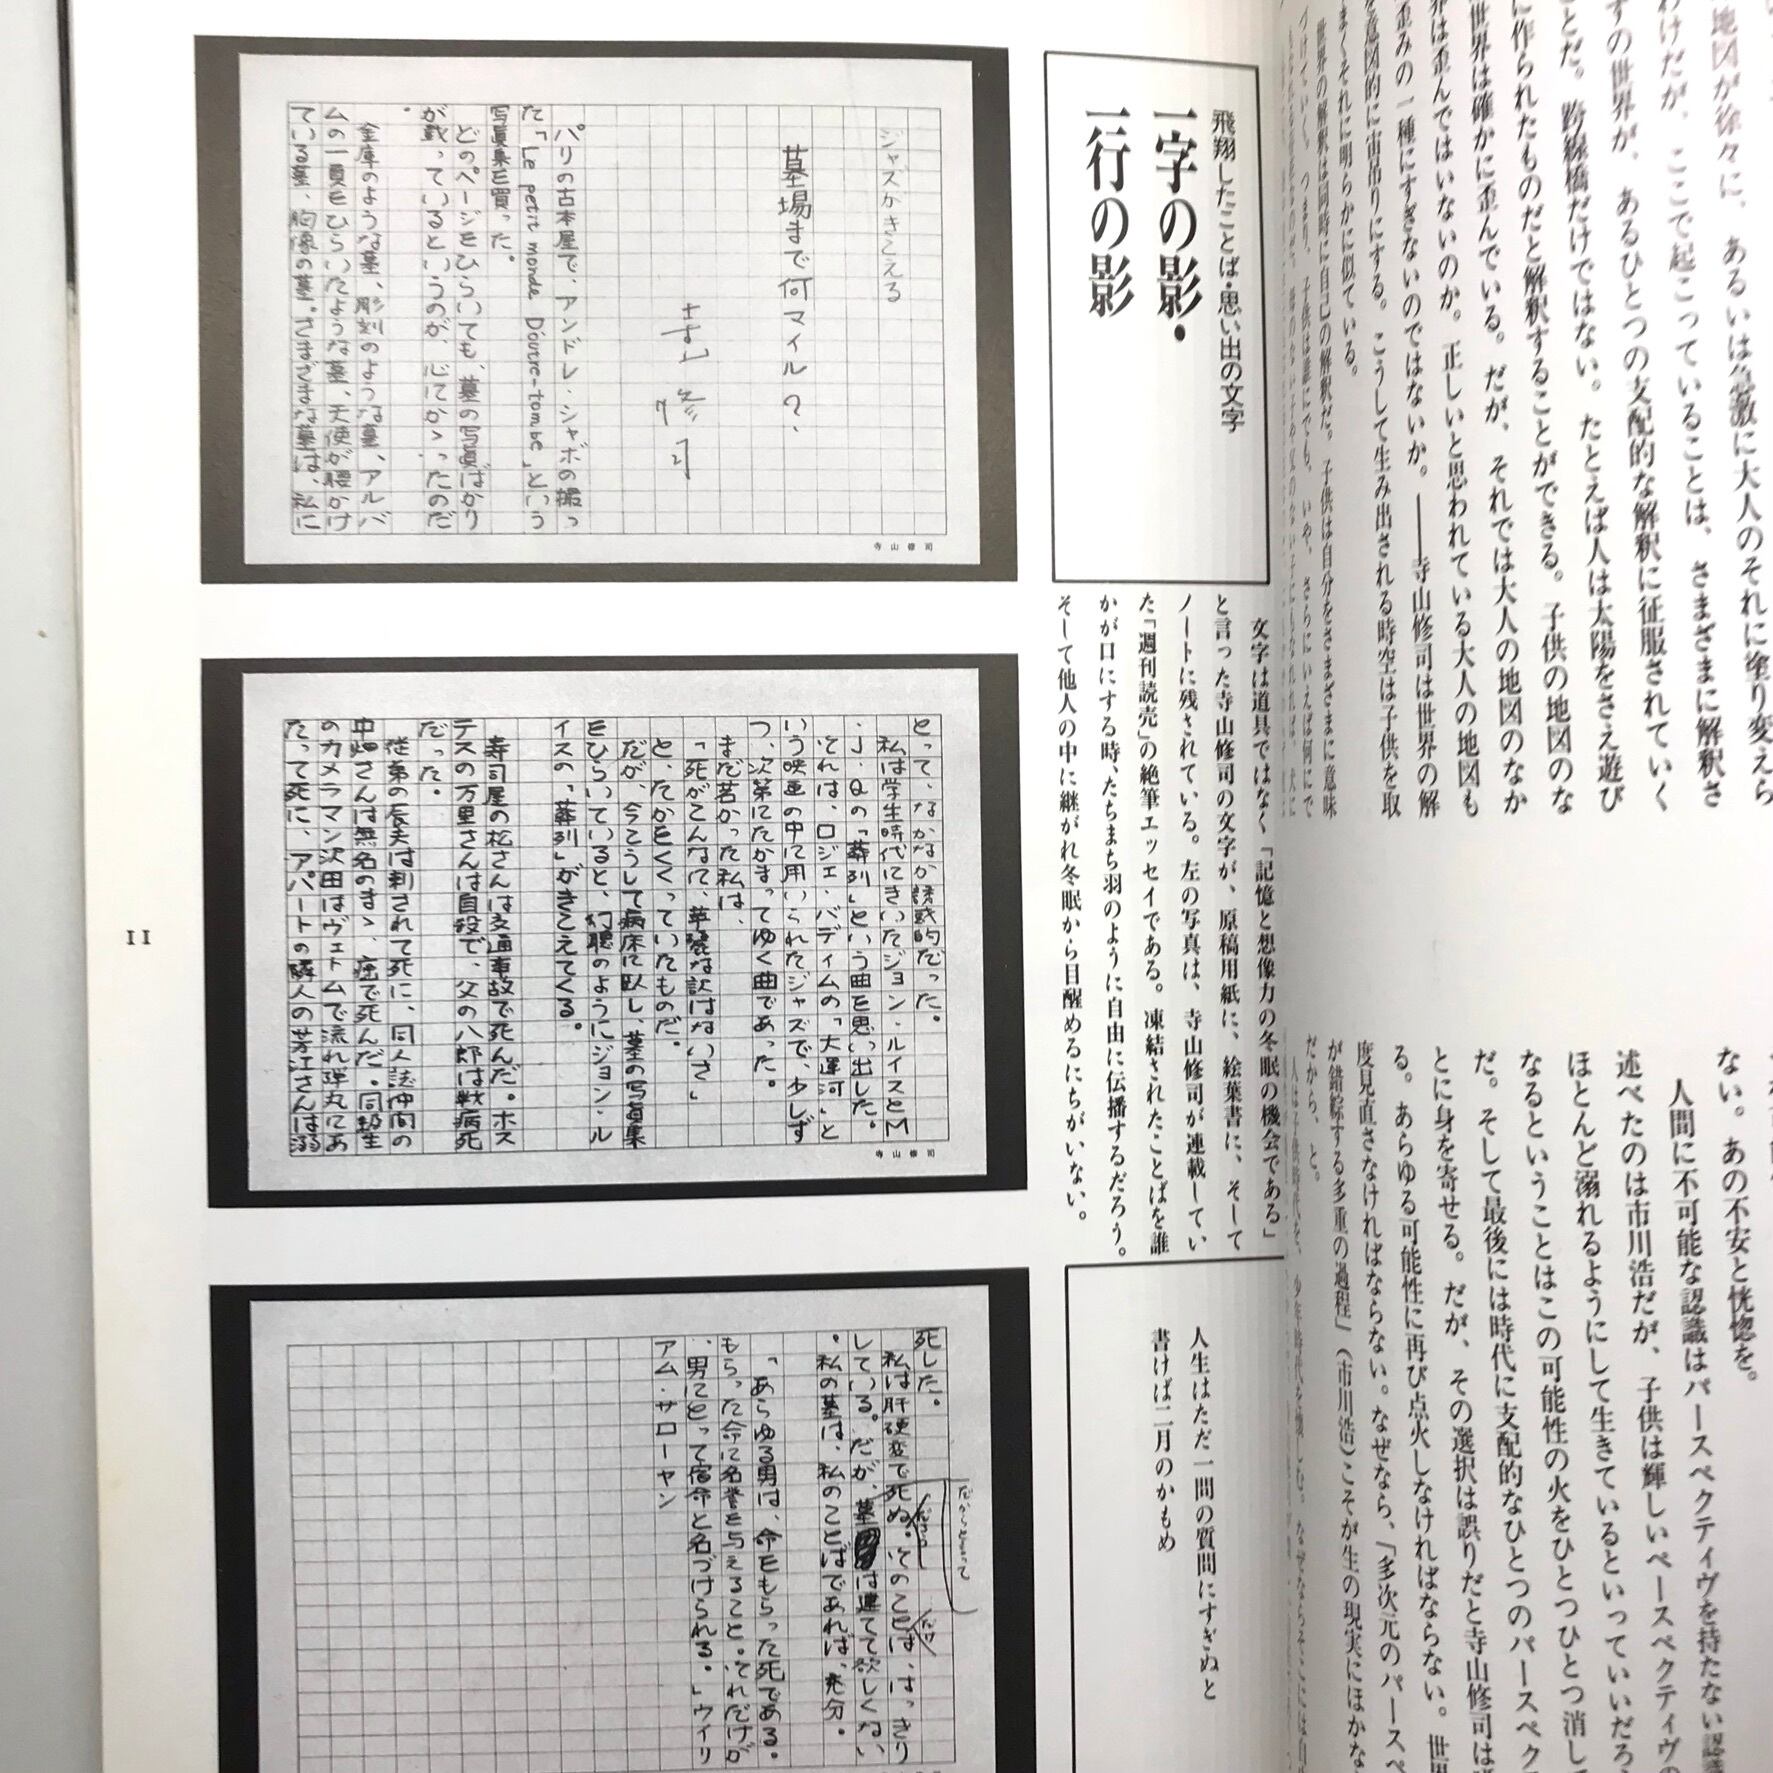 地図が徐々に、あるいは急激に大人のそれに塗り変えら
わけだが、ここで起こっていることは、さまざまに解釈さ
すの世界が、あるひとつの支配的な解釈に征服されていく
ことだ。跨線橋だけではない。たとえば人は太陽をさえ遊び
に作られたものだと解釈することができる。子供の地図のな
世界は確かに歪んでいる。だが、それでは大人の地図のなか
界は歪んではいないのか。正しいと思われている大人の地図も
歪みの一種にすぎないのではないか。――寺山修司は世界の解
を意図的に宙吊りにする。こうして生み出される時空は子供を取
まくそれに明らかに似ている。
世界の解釈は同時に自己の解釈だ。子供は自分をさまざまに意味
づけていく。つまり、子供は誰にでも、いや、さらにいえば何にで
ない。あの不安と恍惚を。
人間に不可能な認識はパースペクティヴを持たない認識
述べたのは市川浩だが、子供は輝しいペースペクティヴの
ほとんど溺れるようにして生きているといっていいだろ
なるということはこの可能性の火をひとつひとつ消して
だ。そして最後には時代に支配的なひとつのパースペク
とに身を寄せる。だが、その選択は誤りだと寺山修司は
る。あらゆる可能性に再び点火しなければならない。世界
度見直さなければならない。なぜなら、「多次元のパースペ
が錯綜する多重の過程」（市川浩）こそが生の現実にほかな
だから、と。
飛翔したことば・思い出の文字
一字の影・
一行の影
文字は道具ではなく「記憶と想像力の冬眠の機会である」
と言った寺山修司の文字が、原稿用紙に、絵葉書に、そして
ノートに残されている。左の写真は、寺山修司が連載してい
た「週刊読売」の絶筆エッセイである。凍結されたことばを誰
かが口にする時、たちまち羽のように自由に伝播するだろう。
そして他人の中に継がれ冬眠から目醒めるにちがいない。
人生はただ一問の質問にすぎぬと
書けば二月のかもめ
ジャズがきこえる
墓場まで何マイル？
寺山修司
パリの古本屋で、アンドレ・シャボの撮っ
た「Le petit monde D'outre-tombe」という
写真集を買った。
どのページをひらいても、墓の写真ばかり
が載っているというのが、心にかゝったのだ
。
金庫のような墓、彫刻のような墓、アルバ
ムの一頁をひらいたような墓、天使が腰かけ
ている墓、胸像の墓。さまざまな墓は、私に
寺山修司
とって、なかなか誘惑的だった。
私は学生時代にきいたジョン・ルイスとM
・J・Qの「葬列」という曲を思い出した。
それは、ロジェ・バディムの「大運河」と
いう映画の中に用いられたジャズで、少しず
つ、次第にたかまってゆく曲であった。
まだ若かった私は、
「死がこんなに、華麗な訳はないさ」
と、たかをくくっていたものだ。
だが、今こうして病床に臥し、墓の写真集
をひらいていると、幻聴のようにジョン・ル
イスの「葬列」がきこえてくる。
寿司屋の松さんは交通事故で死んだ。ホス
テスの万里さんは自殺で、父の八郎は戦病死
だった。
従弟の辰夫は刺されて死に、同人誌仲間の
中畑さんは無名のまゝ、癌で死んだ。同級生
のカメラマン沢田はヴェトムで流れ弾丸にあ
たって死に、アパートの隣人の芳江さんは溺
寺山修司
死した。
私は肝硬変で死ぬ。そのことは、はっきり
だろう
だからといって
だけ
している。だが、墓は建てて欲しくない
。私の墓は、私のことばであれば、充分。
「あらゆる男は、命をもらった死である。
もらった命に名誉を与えること。それだけが
、男にとって宿命と名づけられる。」ウイリ
アム・サローヤン
11